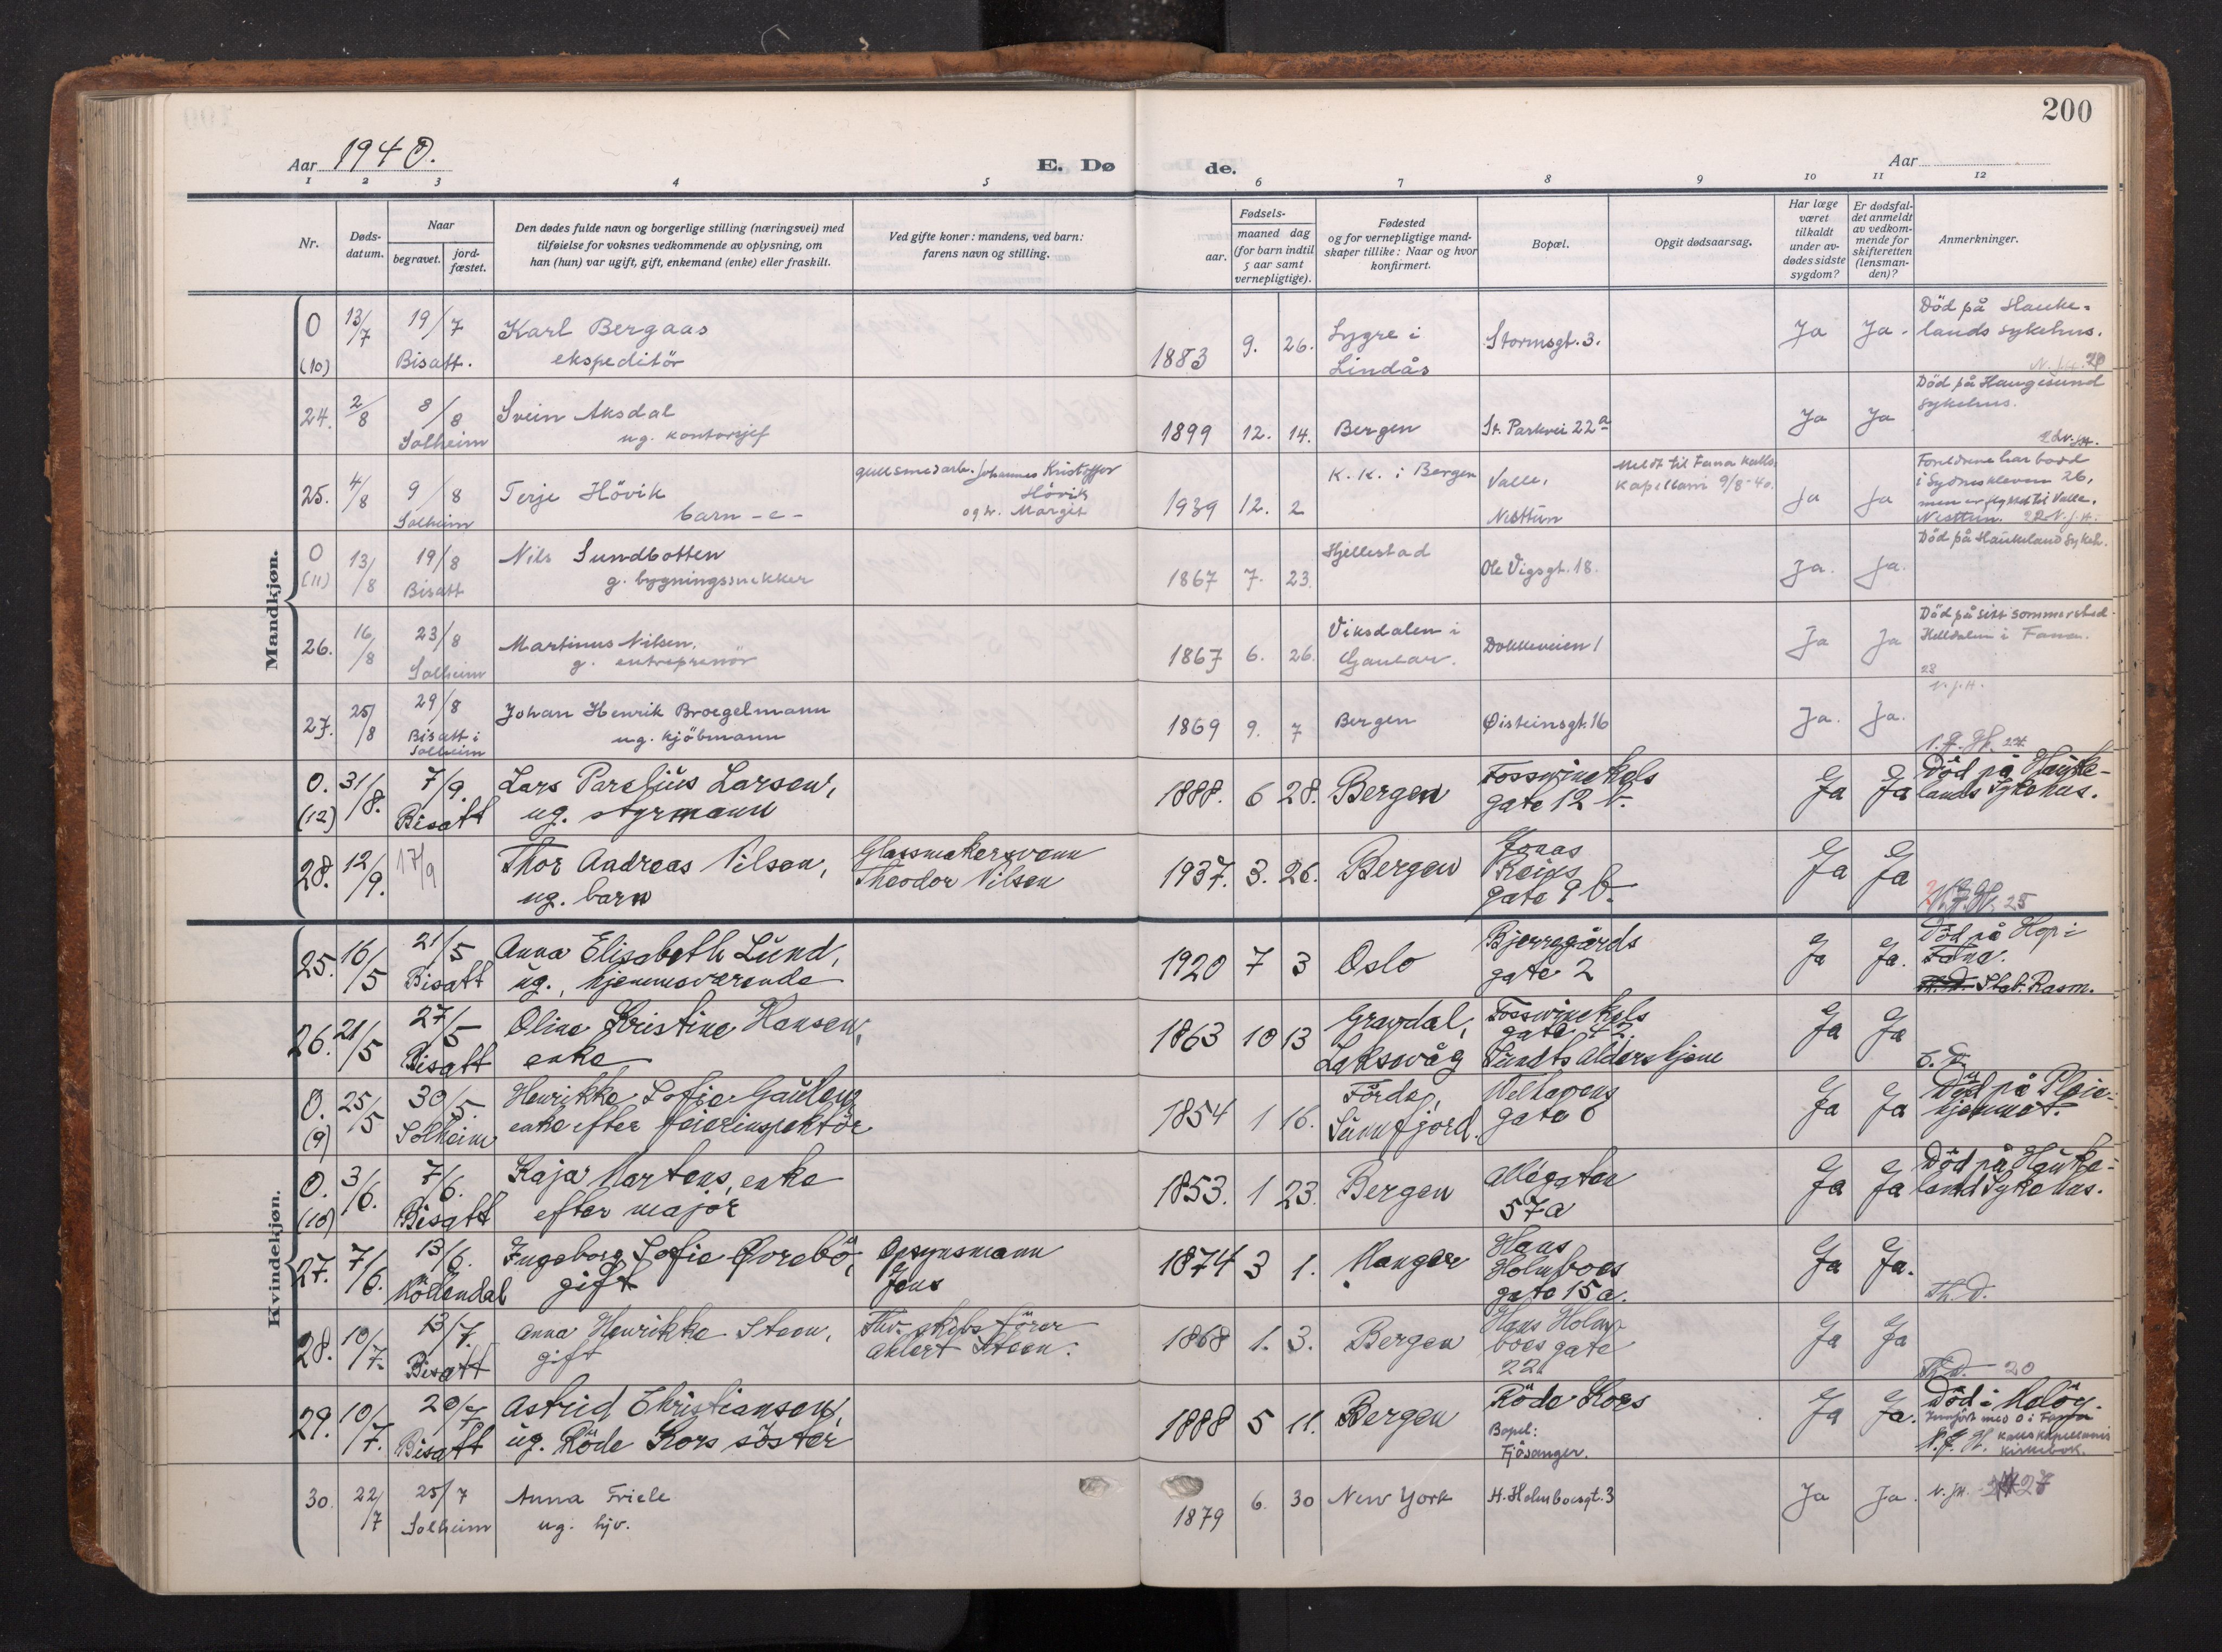 200
Aar 1940.
E. Dø
de.
Aar
1 2 3 4 5 6 7 8 9 10 11 12
Nr.
Døds-
datum.
Naar
begravet.
jord-
fæstet.
Den dødes fulde navn og borgerlige stilling (næringsvei) med
tilføielse for voksnes vedkommende av oplysning, om
han (hun) var ugift, gift, enkemand (enke) eller fraskilt.
Ved gifte koner: mandens, ved barn:
farens navn og stilling.
Fødsels-
aar.
maaned dag
(for barn indtil
5 aar samt
vernepligtige).
Fødested
og for vernepligtige mand-
skaper tillike: Naar og hvor
konfirmert.
Bopæl.
Opgit dødsaarsag.
Har læge
været
tilkaldt
under av-
dødes sidste
sygdom?
Er dødsfal-
det anmeldt
av vedkom-
mende for
skifteretten
(lensman-
den)?
Anmerkninger.
Mandkjøn.
0
(10)
13/7
19/7
Bisatt.
Karl Bergaas
ekspeditör
1883 9. 26.
Lygre i
Lindås
Stormsgt. 3.
Ja Ja.
Död på Hauke-
lands sykehus.
24.
2/8
8/8
Solheim
Svein Aksdal
ug. kontorsjef
1899 12. 14. Bergen
St. Parkvei 22a
Ja Ja
Död på Haugesund
sykehus.
25.
4/8
9/8
Solheim
Terje Hövik
barn - e -
gullsmedarb. Johannes Kristoffer
Hövik
og h. Margit
1939 12. 2
K. K. i Bergen
Valle,
Nesttun
Meldt til Fana kalls-
kapellani 9/8-40.
Ja Ja
Foreldrene har bodd
i Sydneskleven 26,
men er flyttet til Valle,
Nesttun. 22 N.J.H.
0
(11)
13/8
19/8
Bisatt
Nils Sundbotten
g. bygningssnekker
1867 7. 23.
Hjellestad
Ole Vigsgt. 18.
Ja. Ja.
Död på Haukeland Sykeh.
26.
16/8
23/8
Solheim
Martinus Nilsen,
g. entreprenör
1867 6. 26.
Viksdalen i
Gaular.
Dokkeveien 1
Ja Ja
Död på sitt sommersted
Helldalen i Fana.
23
N.J.H.
27.
25/8
29/8
Bisatt i
Solheim
Johan Henrik Broegelmann
ug. kjöbmann
1869 9. 7 Bergen
Øisteinsgt. 16
Ja. Ja.
0.
(12)
31/8.
7/9.
Bisatt
Lars Parelius Larsen,
ug. styrmann
1888. 6 28. Bergen
Fosswinckels
gate 12 b.
Ja Ja
Död på Hauke-
lands Sykehus.
28.
12/9.
17/9
Thor Andreas Nilsen,
ug. barn
Glassmakersvenn
Theodor Nilsen
1937. 3. 26. Bergen
Jonas
Reins
gate 9 b.
Ja Ja
N.J.H. 25
Kvindekjøn.
25.
16/5
21/5
Bisatt
Anna Elisabeth Lund,
ug., hjemmeværende
1920 7 3 Oslo
Bjerregårds
gate 2
Ja Ja.
Död på Hop i
Fana.
Stat. Rasm.
26.
21/5
27/5
Bisatt
Oline Kristine Hansen,
enke
1863 10 13
Gravdal,
Laksevåg
Fosswinckels
gate 42
Sundts Aldershjem
Ja Ja
0.
(9)
25/5
30/5.
Solheim
Henrikke Sofie Gaulen
enke efter feierinspektör
1854 1 16.
Förde,
Sunnfjord.
Welhavens
gate 6
Ja Ja
Död på Pleie-
hjemmet.
0.
(10)
3/6.
7/6.
Bisatt
Kaja Martens, enke
efter major
1853. 1 23. Bergen
Allégaten
57a
Ja Ja
Död på Hauke-
land Sykehus.
27.
7/6.
13/6.
Möllendal
Ingeborg Sofie Øvrebö,
gift
Opsynsmann
Jens
1874 3 1. Manger
Hans
Holmboes
gate 15a.
Ja Ja.
Th. D.
28.
10/7.
13/7.
Bisatt
Anna Henrikke Steen,
gift
Fhv. skibsförer
Ahlert Steen.
1868 1. 3. Bergen
Hans Holm-
boes gate
22
Ja Ja
Th. D. 20
29.
10/7.
20/7
Bisatt
Astrid Christiansen,
ug. Röde Kors söster
1888 5 11. Bergen
Röde Kors
Bopel:
Fjösanger.
Ja Ja.
Död i Malöy.
Innfört med 0 i Fana
N.J.H. kallskapellanis
kirkebok.
30.
22/7
25/7
Solheim
Anna Friele
ug. hjv.
1879 6. 30 New York
H. Holmboesgt. 3
Ja Ja.
N.J.H. 27